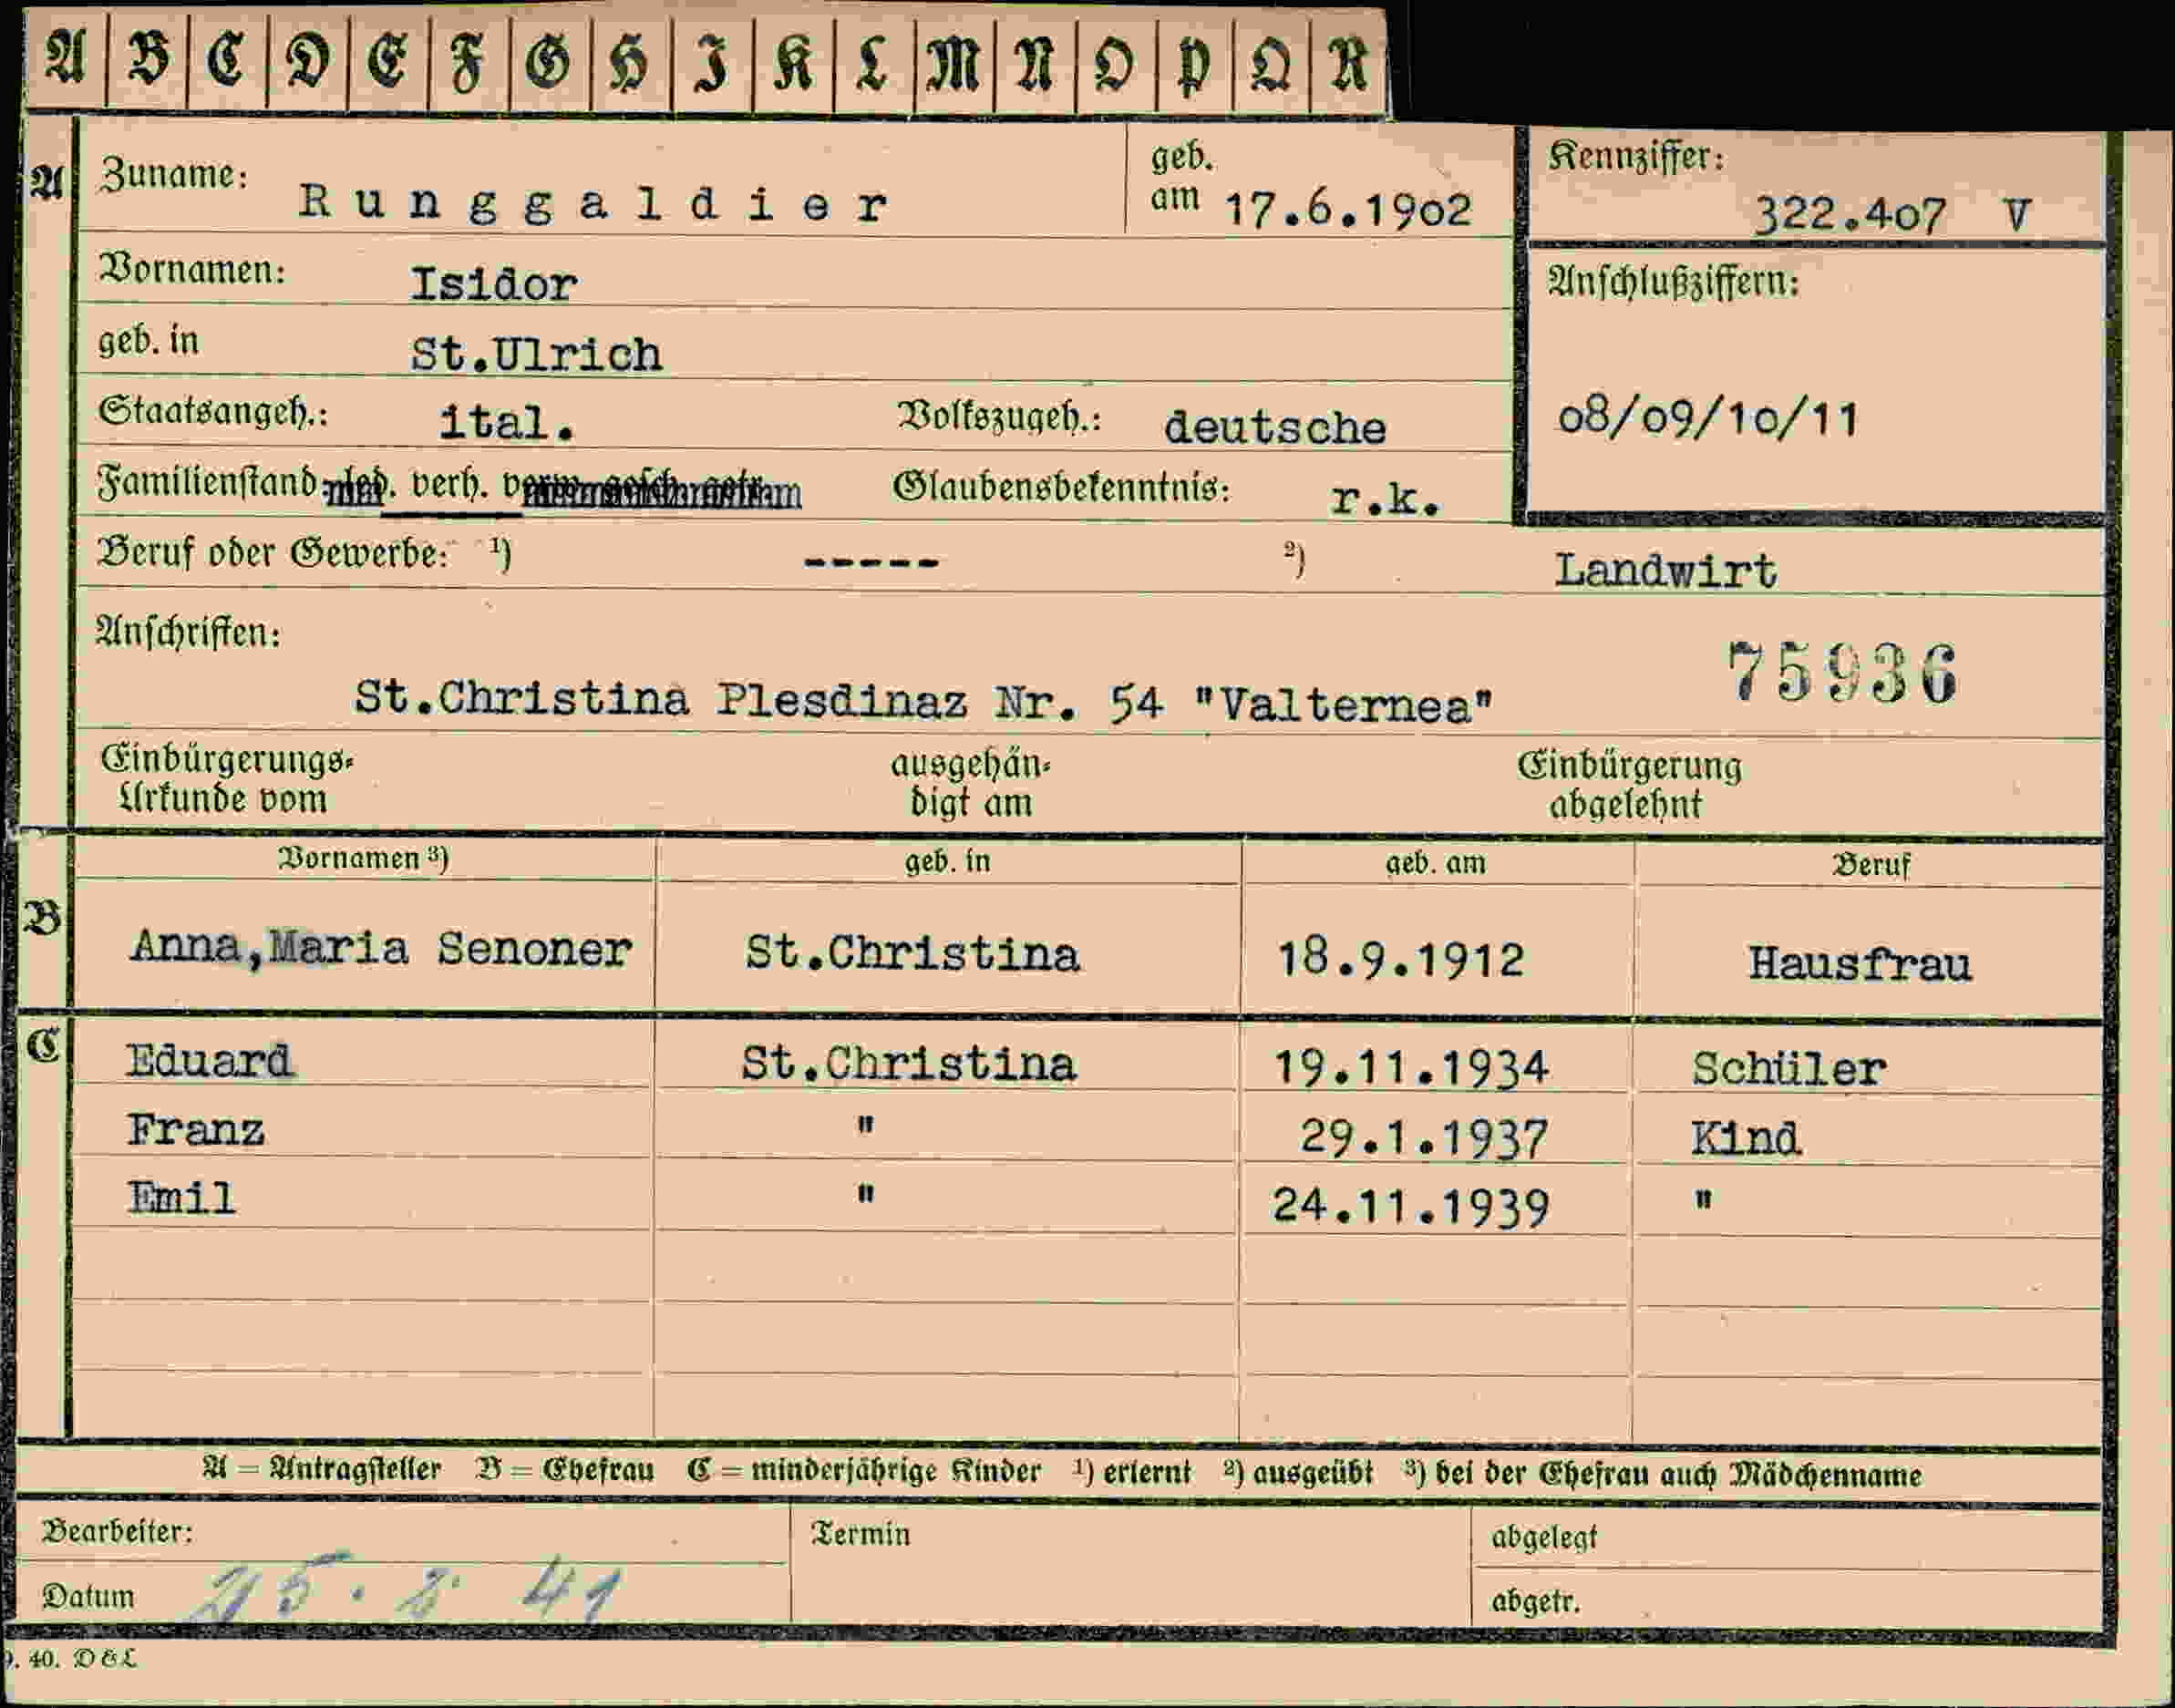 A B C D E F G H I K L M N O P Q R
A
Zuname: Runggaldier geb. am 17.6.1902
Kennziffer: 322.407 V
Vornamen: Isidor
Anschlußziffern:
geb. in St.Ulrich
Staatsangeh.: ital. Volkszugeh.: deutsche
08/09/10/11
Familienstand: led. verh. verw. gesch. getr. Glaubensbekenntnis: r.k.
Beruf oder Gewerbe: ¹) ----- ²) Landwirt
Anschriften:
75936
St.Christina Plesdinaz Nr. 54 "Valternea"
Einbürgerungs- ausgehän- Einbürgerung
Urkunde vom digt am abgelehnt
Vornamen ³) geb. in geb. am Beruf
B
Anna,Maria Senoner St.Christina 18.9.1912 Hausfrau
C
Eduard St.Christina 19.11.1934 Schüler
Franz " 29.1.1937 Kind
Emil " 24.11.1939 "
A = Antragsteller B = Ehefrau C = minderjährige Kinder ¹) erlernt ²) ausgeübt ³) bei der Ehefrau auch Mädchenname
Bearbeiter: Termin abgelegt
Datum 25. 8. 41 abgetr.
40. D&L